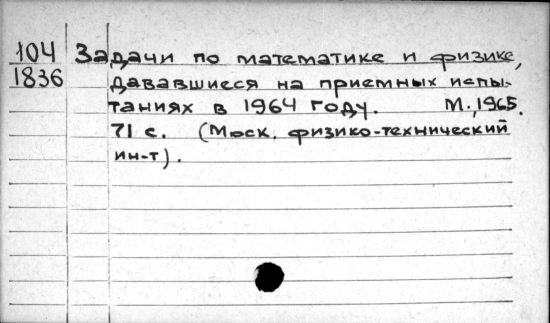 104 Задачи по математике и физике,
1836 дававшиеся на приемных испы-
таниях в 1964 году. М., 1965.
71 с. (Моск. физико-технический
ин-т).